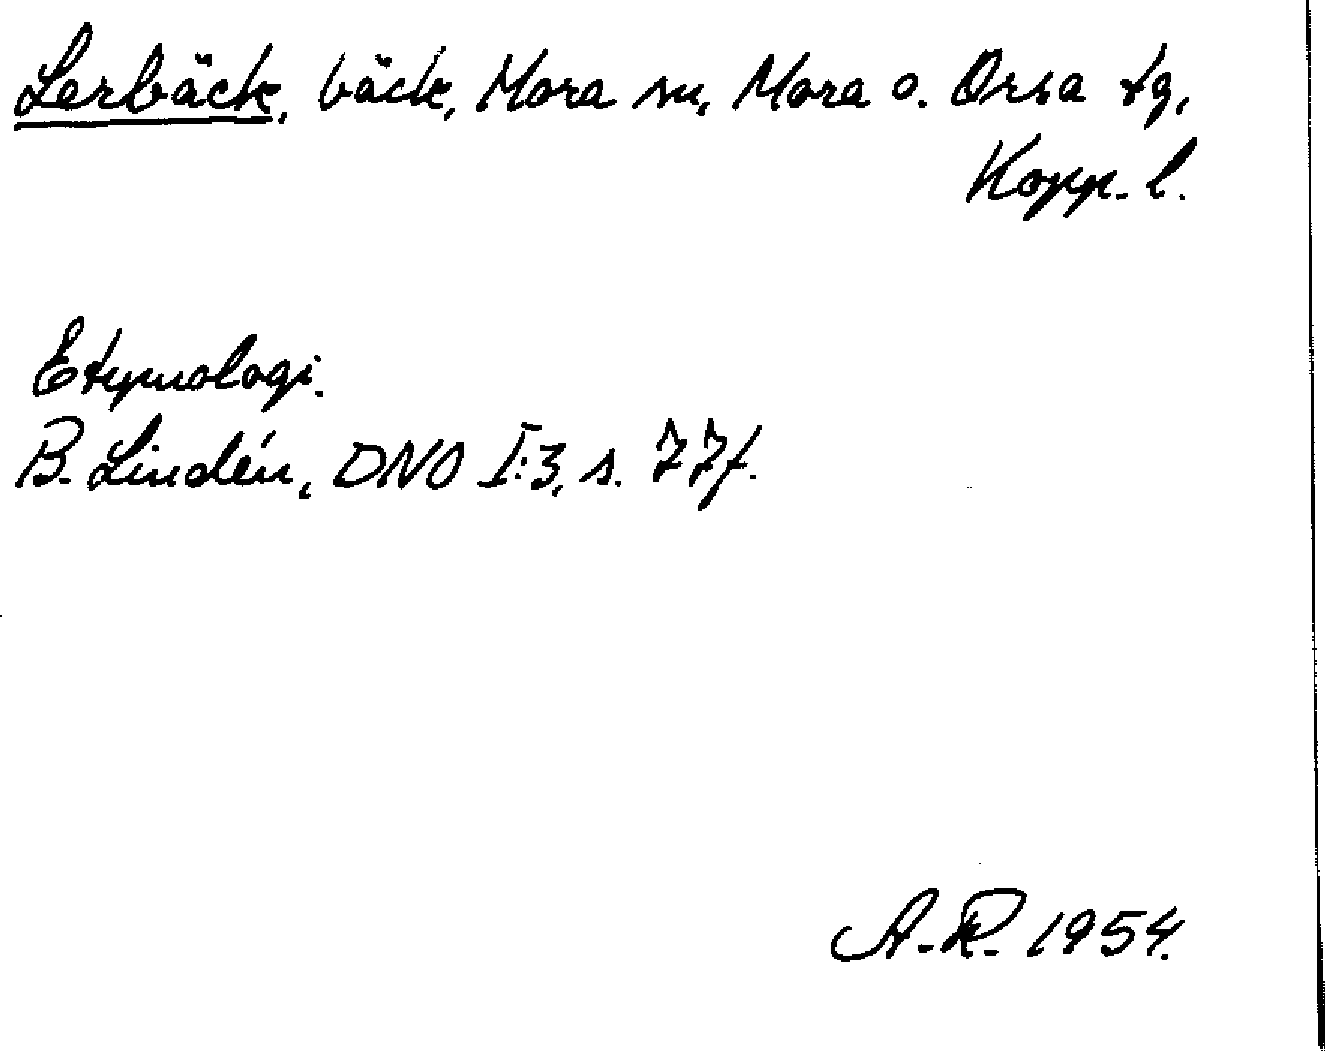 Lerbäck, bäck, Mora sn, Mora o. Orsa tg,
Kopp. l.
Etymologi.
B. Lindén, DNO I:3, s. 77f.
A.R. 1954.